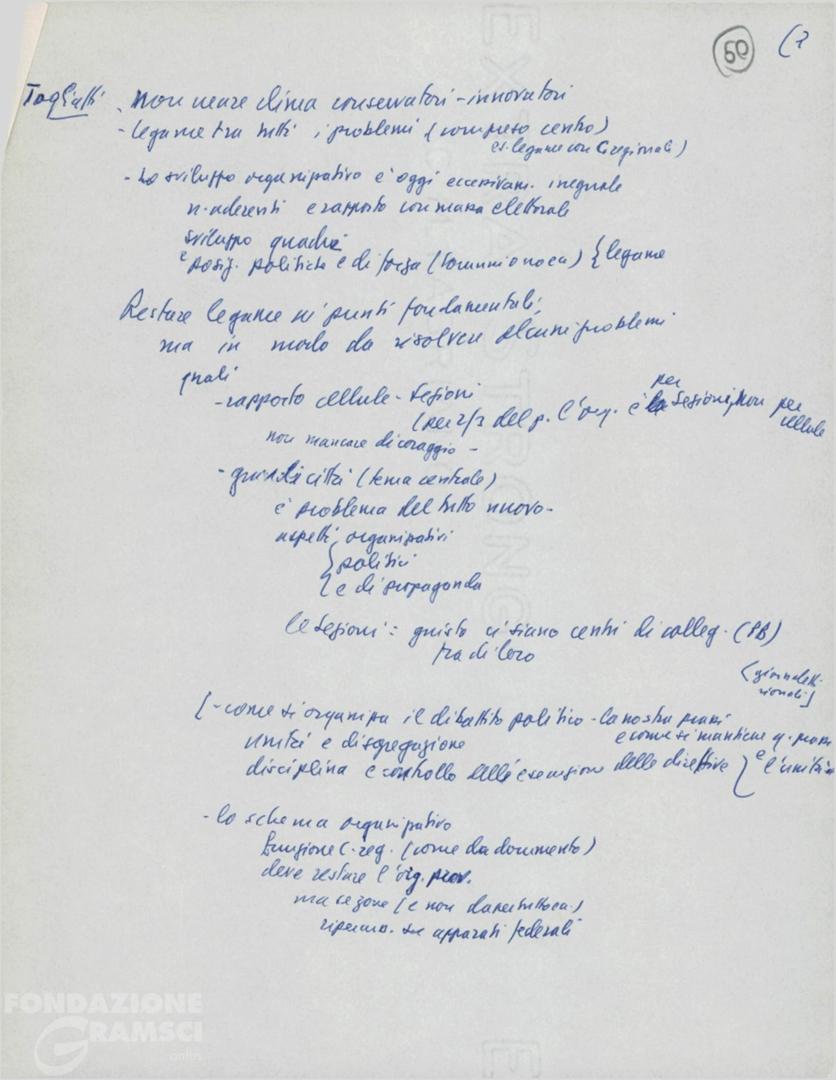 50 (2
Togliatti - Non creare clima conservatori - innovatori
- legame tra tutti i problemi (compreso centro)
es. legame con C. regionali)
- Lo sviluppo organizzativo è oggi eccessivam. ineguale
n. aderenti e rapporto con massa elettorale
sviluppo quadri
e posiz. politiche e di forza { legame
Restare legame ai punti fondamentali,
ma in modo da risolvere alcuni problemi
quali
- rapporto cellule - Sezioni
(per 2/3 del p. l'org. è per Sezioni, Non per cellule
non mancare di coraggio -
- grandi città (tema centrale)
è problema del tutto nuovo -
aspetti organizzativi
{ politici
{ e di propaganda
le Sezioni: giusto ci siano centri di colleg. (PB)
tra di loro
[- come si organizza il dibattito politico - la nostra prassi
e come si mantiene q. prassi
unità e disgregazione
disciplina e controllo dell'esecuzione delle direttive } e l'unità
- lo schema organizzativo
funzione C. reg. (come da documento)
deve restare l'org. prov.
ma (e non
apparati federali
FONDAZIONE
GRAMSCI
onlus